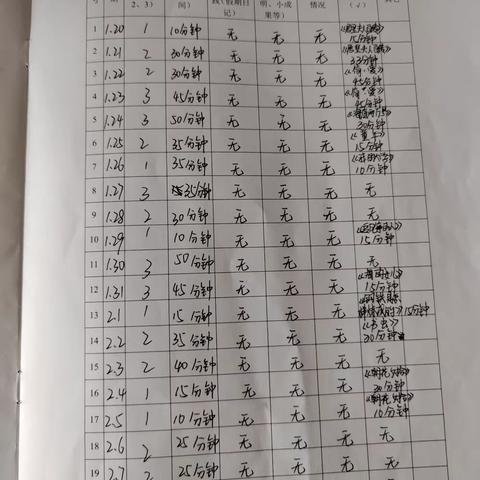 号 期 2、3） 间） 践（假期日 明、小成 情况 （√）
记） 果等）
1 1.20 1 10分钟 无 无 无
15分钟
2 1.21 2 30分钟 无 无 无
33分钟
3 1.22 2 30分钟 无 无 无
45分钟
4 1.23 3 45分钟 无 无 无
45分钟
5 1.24 3 50分钟 无 无 无
30分钟
6 1.25 2 35分钟 无 无 无
15分钟
7 1.26 1 35分钟 无 无 无
10分钟
8 1.27 3 35分钟 无 无 无 无
9 1.28 2 30分钟 无 无 无 无
10 1.29 1 10分钟 无 无 无
15分钟
11 1.30 3 50分钟 无 无 无 无
12 1.31 3 45分钟 无 无 无
15分钟
13 2.1 1 15分钟 无 无 无
15分钟
14 2.2 2 35分钟 无 无 无
30分钟
15 2.3 2 40分钟 无 无 无 无
16 2.4 1 15分钟 无 无 无 《朝花夕拾》
30分钟
17 2.5 1 10分钟 无 无 无 《朝花夕拾》
10分钟
18 2.6 2 25分钟 无 无 无 无
19 2.7 2 25分钟 无 无 无 无